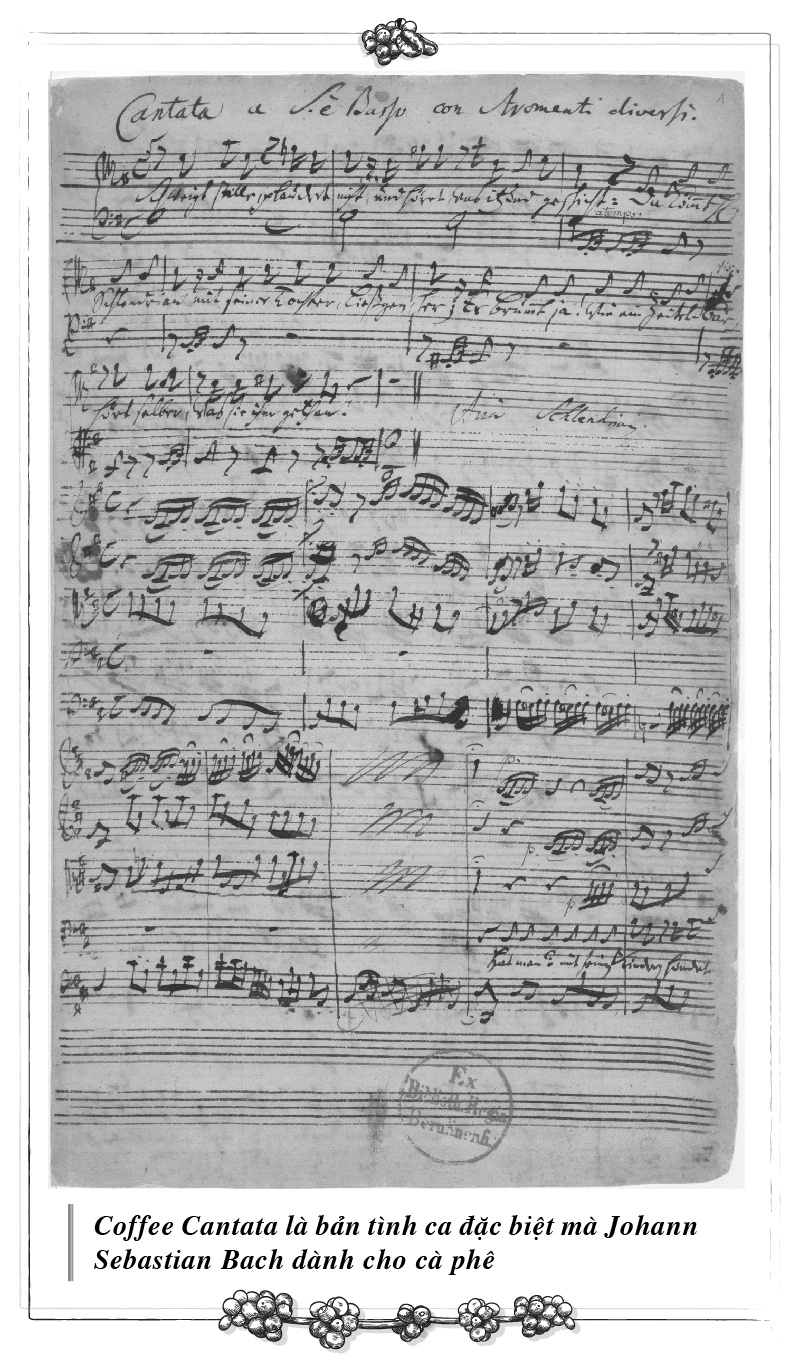 Cantata a S. è Basso con Stromenti diversi.
Schweigt stille, plaudert nicht, und höret was itzund geschicht: Da kömmt H
a tempo.
Schlendrian mit seiner Tochter Ließgen her; Er brumt ja wie ein Zeidel Bär,
hört selber, was sie ihm gethan!
Aria Schlendrian.
Hat man nicht mit seinen Kindern hundert
Ex
Biblioth. Regia
Berolinensi.
Coffee Cantata là bản tình ca đặc biệt mà Johann
Sebastian Bach dành cho cà phê